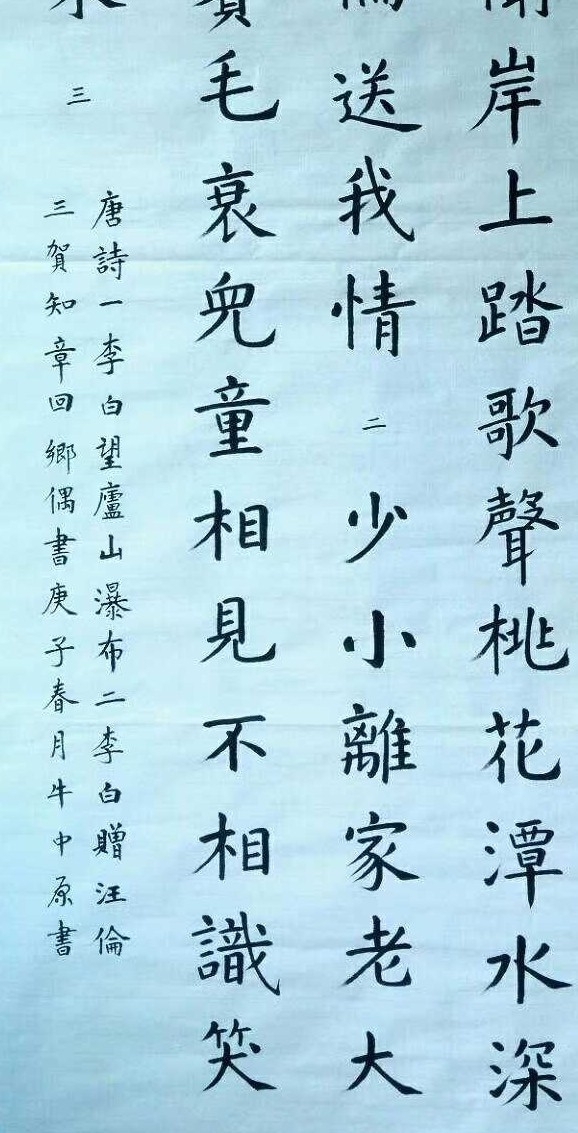 岸上踏歌聲桃花潭水深
送我情 二 少小離家老大
毛衰兒童相見不相識笑
三
唐詩一李白望廬山瀑布二李白贈汪倫
三賀知章回鄉偶書庚子春月牛中原書